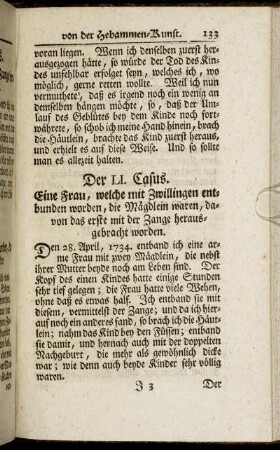 von der Hebammen-Kunst. 133
voran liegen. Wenn ich denselben zuerst her-
ausgezogen hätte, so würde der Tod des Kin-
des unfehlbar erfolget seyn, welches ich, wo
möglich, gerne retten wollte. Weil ich nun
vermuthete, daß es irgend noch ein wenig an
demselben hängen möchte, so, daß der Um-
lauf des Geblütes bey dem Kinde noch fort-
währete, so schob ich meine Hand hinein, brach
die Häutlein, brachte das Kind zuerst heraus,
und erhielt es auf diese Weise. Und so sollte
man es allezeit halten.
Der LI. Casus.
Eine Frau, welche mit Zwillingen ent-
bunden worden, die Mägdlein waren, da-
von das erste mit der Zange heraus-
gebracht worden.
Den 28. April, 1734. entband ich eine ar-
me Frau mit zwey Mägdlein, die nebst
ihrer Mutter beyde noch am Leben sind. Der
Kopf des einen Kindes hatte einige Stunden
sehr tief gelegen; die Frau hatte viele Wehen,
ohne daß es etwas half. Ich entband sie mit
diesem, vermittelst der Zange; und da ich hier-
auf noch ein anderes fand, so brach ich die Häut-
lein; nahm das Kind bey den Füssen; entband
sie damit, und hernach auch mit der doppelten
Nachgeburt, die mehr als gewöhnlich dicke
war; wie denn auch beyde Kinder sehr völlig
waren.
J 3 Der